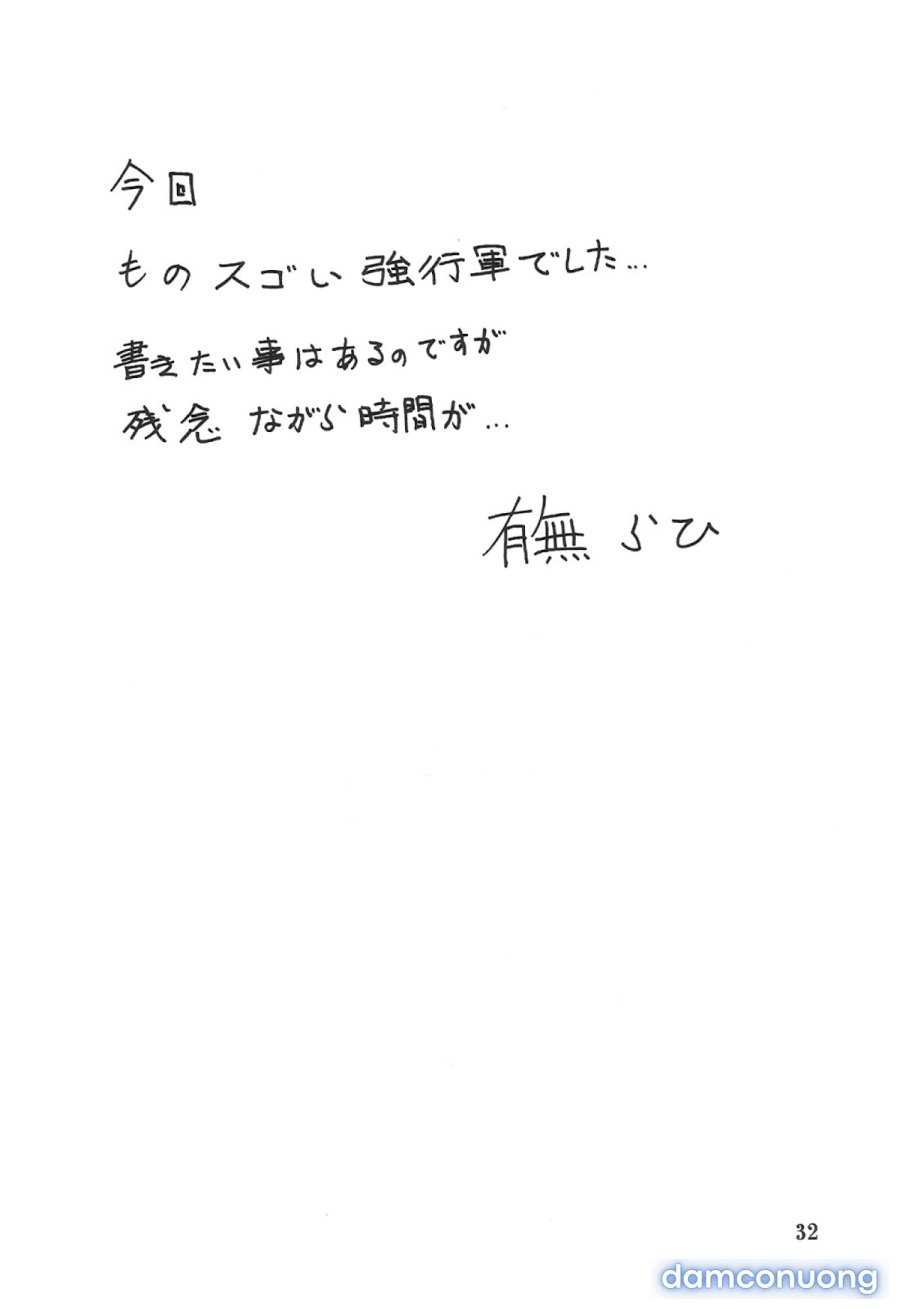 今回
ものスゴい強行軍でした…
書きたい事はあるのですが
残念ながら時間が…
有無らひ
32
damconuong